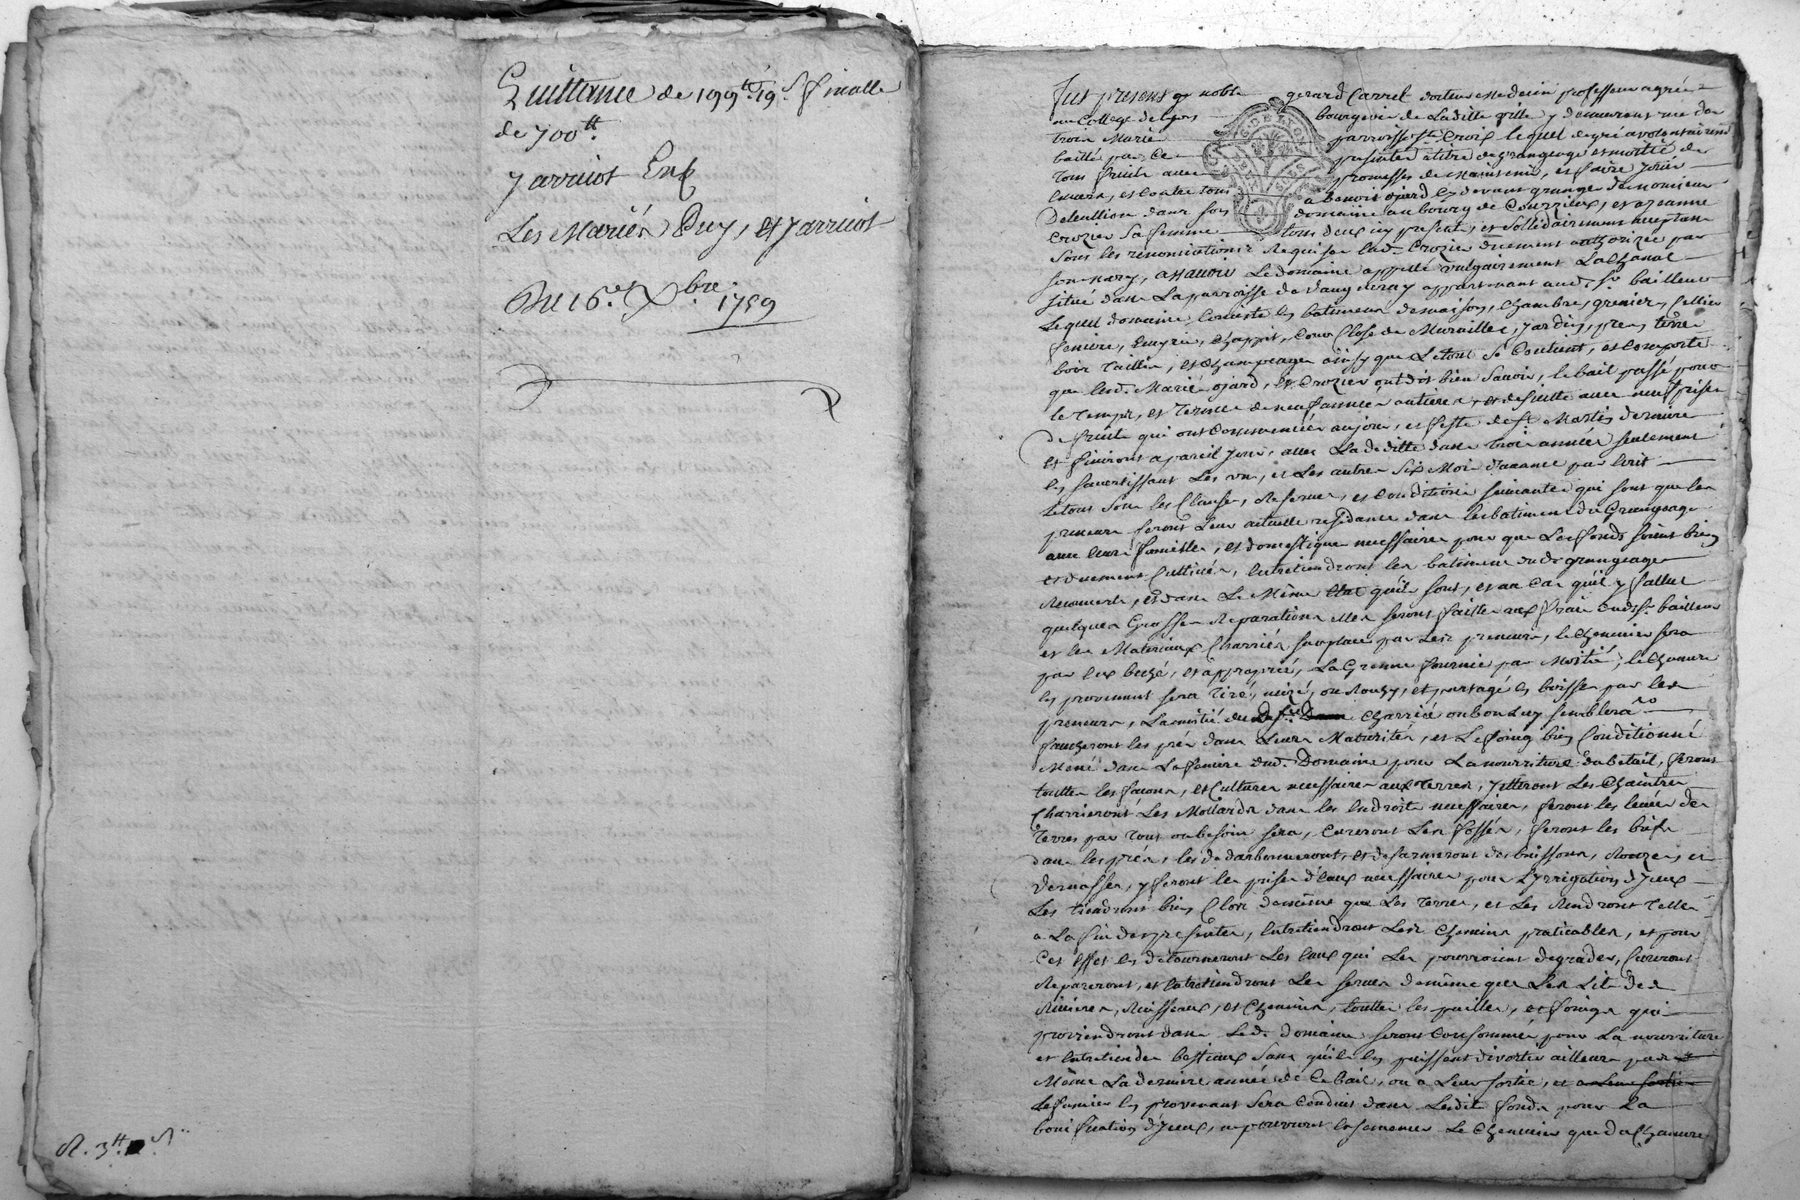 Quittance de 199ᵗᵗ 19ˢ finalle
de 700ᵗᵗ
Jarricot
Les Mariés Duy, et Jarricot
Du 16ᵉ Xbre 1759
R. 3ᵗᵗ
Fut present noble gerard Carret docteur medecin professeur agrée
au College de Lyon bourgeois de Laditte ville y demeurant rüe des
trois Maries parroisse Ste Croix lequel de gré a volontairement
baillé par Ces presentes a titre de grangeage et moitié de
tous fruits avec promesses de maintenir, et faire jouir
envers, et Contre tous a Benoit ojard cy devant granger de monsieur
Delentlion dans son domaine au bourg de Courzieux, et a jeanne
Crozier Sa femme tous deux icy presents, et sollidairement acceptans
sous les renonciations Requises lad. Crozier duement authorizée par
son mary, assavoir Le domaine appellé vulgairement Lachanal
situé dans La parroisse de vaugneray appartenant aud. Sr bailleur
Lequel domaine Consiste en batimens de maison, chambres, grenier, Cellier
feniere, Ecuyrie, chappit, Cour Close de Murailles, jardin, prez, terres
bois Taillis, et Champeages ainsy que Letout Se Contient, et Comporte
que lesd. Mariés ojard, et Crozier ont dit bien Savoir, le bail passé pour
le temps, et Terme de neuf années entieres, et de suitte avec neuf prises
de fruits qui ont Commencées au jour, et feste de St Martin dernier
et finiront a pareil jour, avec La deditte dans trois années seulement
en savertissant Les uns, et Les autres Six Mois davance par Ecrit
Letout Sous les Clauses, Reserves, et Conditions suivantes qui sont que les
preneurs feront Leur actuelle residance dans les batimens du Grangeage
avec leurs familles, et domestiques necessaires pour que Les fonds soient bien
et duement Cultivés, Entretiendront les batimens dud. grangeage
Recouverts, et dans Le Même Etat quils sont, et au Cas quil y fallut
quelques Grosses Reparations elles seront faittes aux frais dudt Sr bailleur
et les Materiaux Charriés sur place par Les preneurs, le Chenevier sera
par eux beché, et approprié, La Graine fournie par Moitié, le Chanvre
en provenant sera Tiré, naizé, ou Rouhy, et partagé en boisses par les
preneurs, La moitié du Charrié ou bon Luy semblera
faucheront les prés dans Leurs Maturités, et Le foing bien Conditionné
Mené dans La feniere dud. Domaine pour La nourriture du betail, feront
touttes les façons, et Cultures necessaires aux Terres, jetteront Les Chaintres
Charrieront Les Mollards dans les Endroits necessaires, feront les levées de
Terres par tout ou besoin sera, Cureront Les fossés, feront les biefs
dans les prés, les dedarbonneront, et desarmeront des buissons, Ronzes, et
vernasses, y feront les prises d'Eaux necessaires pour Lyrrigation d'jceux
Les tiendront bien Clos de même que Les Terres, et Les Rendront telles
a La fin des presentes, Entretiendront Les Chemins praticables, et pour
Cet effet en détourneront Les Eaux qui Les pourroient degrader, Cureront
Repareront, et Entretiendront Les serves de même que Les Lits des
Rivieres, Ruisseaux, et Chemins, touttes les pailles, et foings qui
proviendront dans Led. domaine seront Consommés pour La nourriture
et Entretien des bestiaux Sans quils les puissent divertir ailleurs pas
Même La derniere année de Ce bail, ou a Leur sortie, et a Leur sortie
Le fumier en provenant Sera Conduit dans Lesdits fonds pour La
bonification d'jceux, ne pourront Ensemencer Le Chenevier que de Chanvre